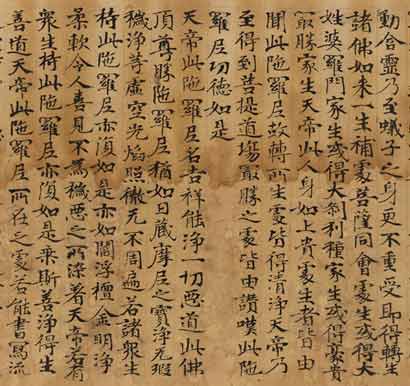 動含靈乃至蟻子之身更不重受即得轉生
諸佛如來一生補處菩薩同會處生或得大
姓婆羅門家生或得大刹利種家生或得豪貴
最勝家生天帝此人身如上貴處生者皆由
聞此陁羅尼故轉所生處皆得清淨天帝乃
至得到菩提道場最勝之處皆由讃嘆此陁
羅尼功德如是
天帝此陁羅尼名吉祥能淨一切惡道此佛
頂尊勝陁羅尼猶如日藏摩尼之寶淨无瑕
穢淨等虛空光焰照徹无不周遍若諸衆生
持此陁羅尼亦復如是亦如閻浮檀金明淨
柔軟令人喜見不為穢惡之所染著天帝若有
衆生持此陁羅尼亦復如是乘斯善淨得生
善道天帝此陁羅尼所在之處若能書寫流